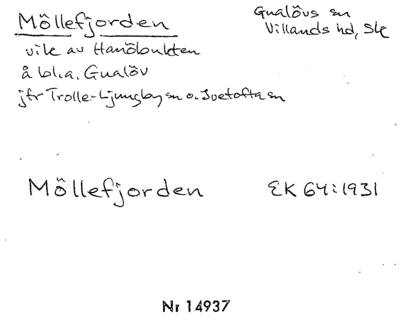 Möllefjorden
Gualövs sn
Villands hd, Sk
vik av Hanöbukten
å bl.a. Gualöv
jfr Trolle-Ljungby sn o. Ivetofta sn
Möllefjorden
EK 64:1931
Nr 14937